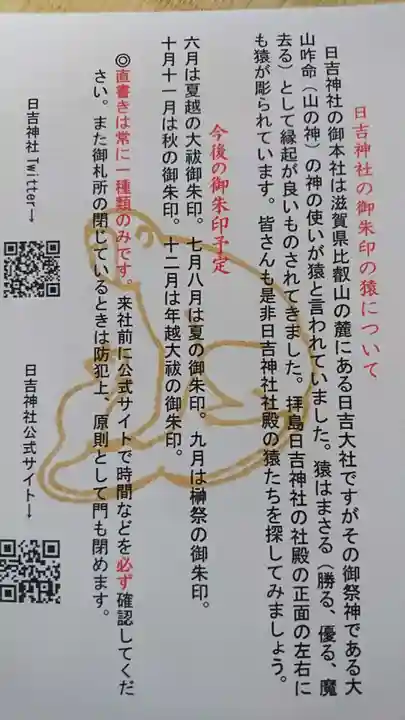 日吉神社の御朱印の猿について
日吉神社の御本社は滋賀県比叡山の麓にある日吉大社ですがその御祭神である大
山咋命（山の神）の神の使いが猿と言われていました。猿はまさる（勝る、優る、魔
去る）として縁起が良いものされてきました。拝島日吉神社の社殿の正面の左右に
も猿が彫られています。皆さんも是非日吉神社社殿の猿たちを探してみましょう。
今後の御朱印予定
六月は夏越の大祓御朱印。七月八月は夏の御朱印。九月は榊祭の御朱印。
十月十一月は秋の御朱印。十二月は年越大祓の御朱印。
◎直書きは常に一種類のみです。来社前に公式サイトで時間などを必ず確認してくだ
さい。また御札所の閉じているときは防犯上、原則として門も閉めます。
日吉神社Twitter→
日吉神社公式サイト→